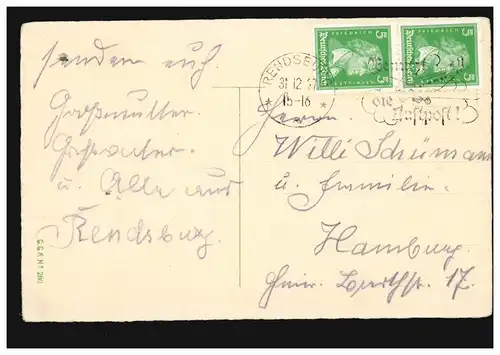 senden euch
Großmutter.
Großvater.
u. Alle aus
Rendsburg.
G.G.K.M.T.
FRIEDRICH
5 Deutsches Reich 5
FRIEDRICH
5 Deutsches Reich 5
RENDSB
31.12.27
15-16
die
Luftpost!
Herrn
Willi Schümann
u. Familie.
Hamburg.
17.